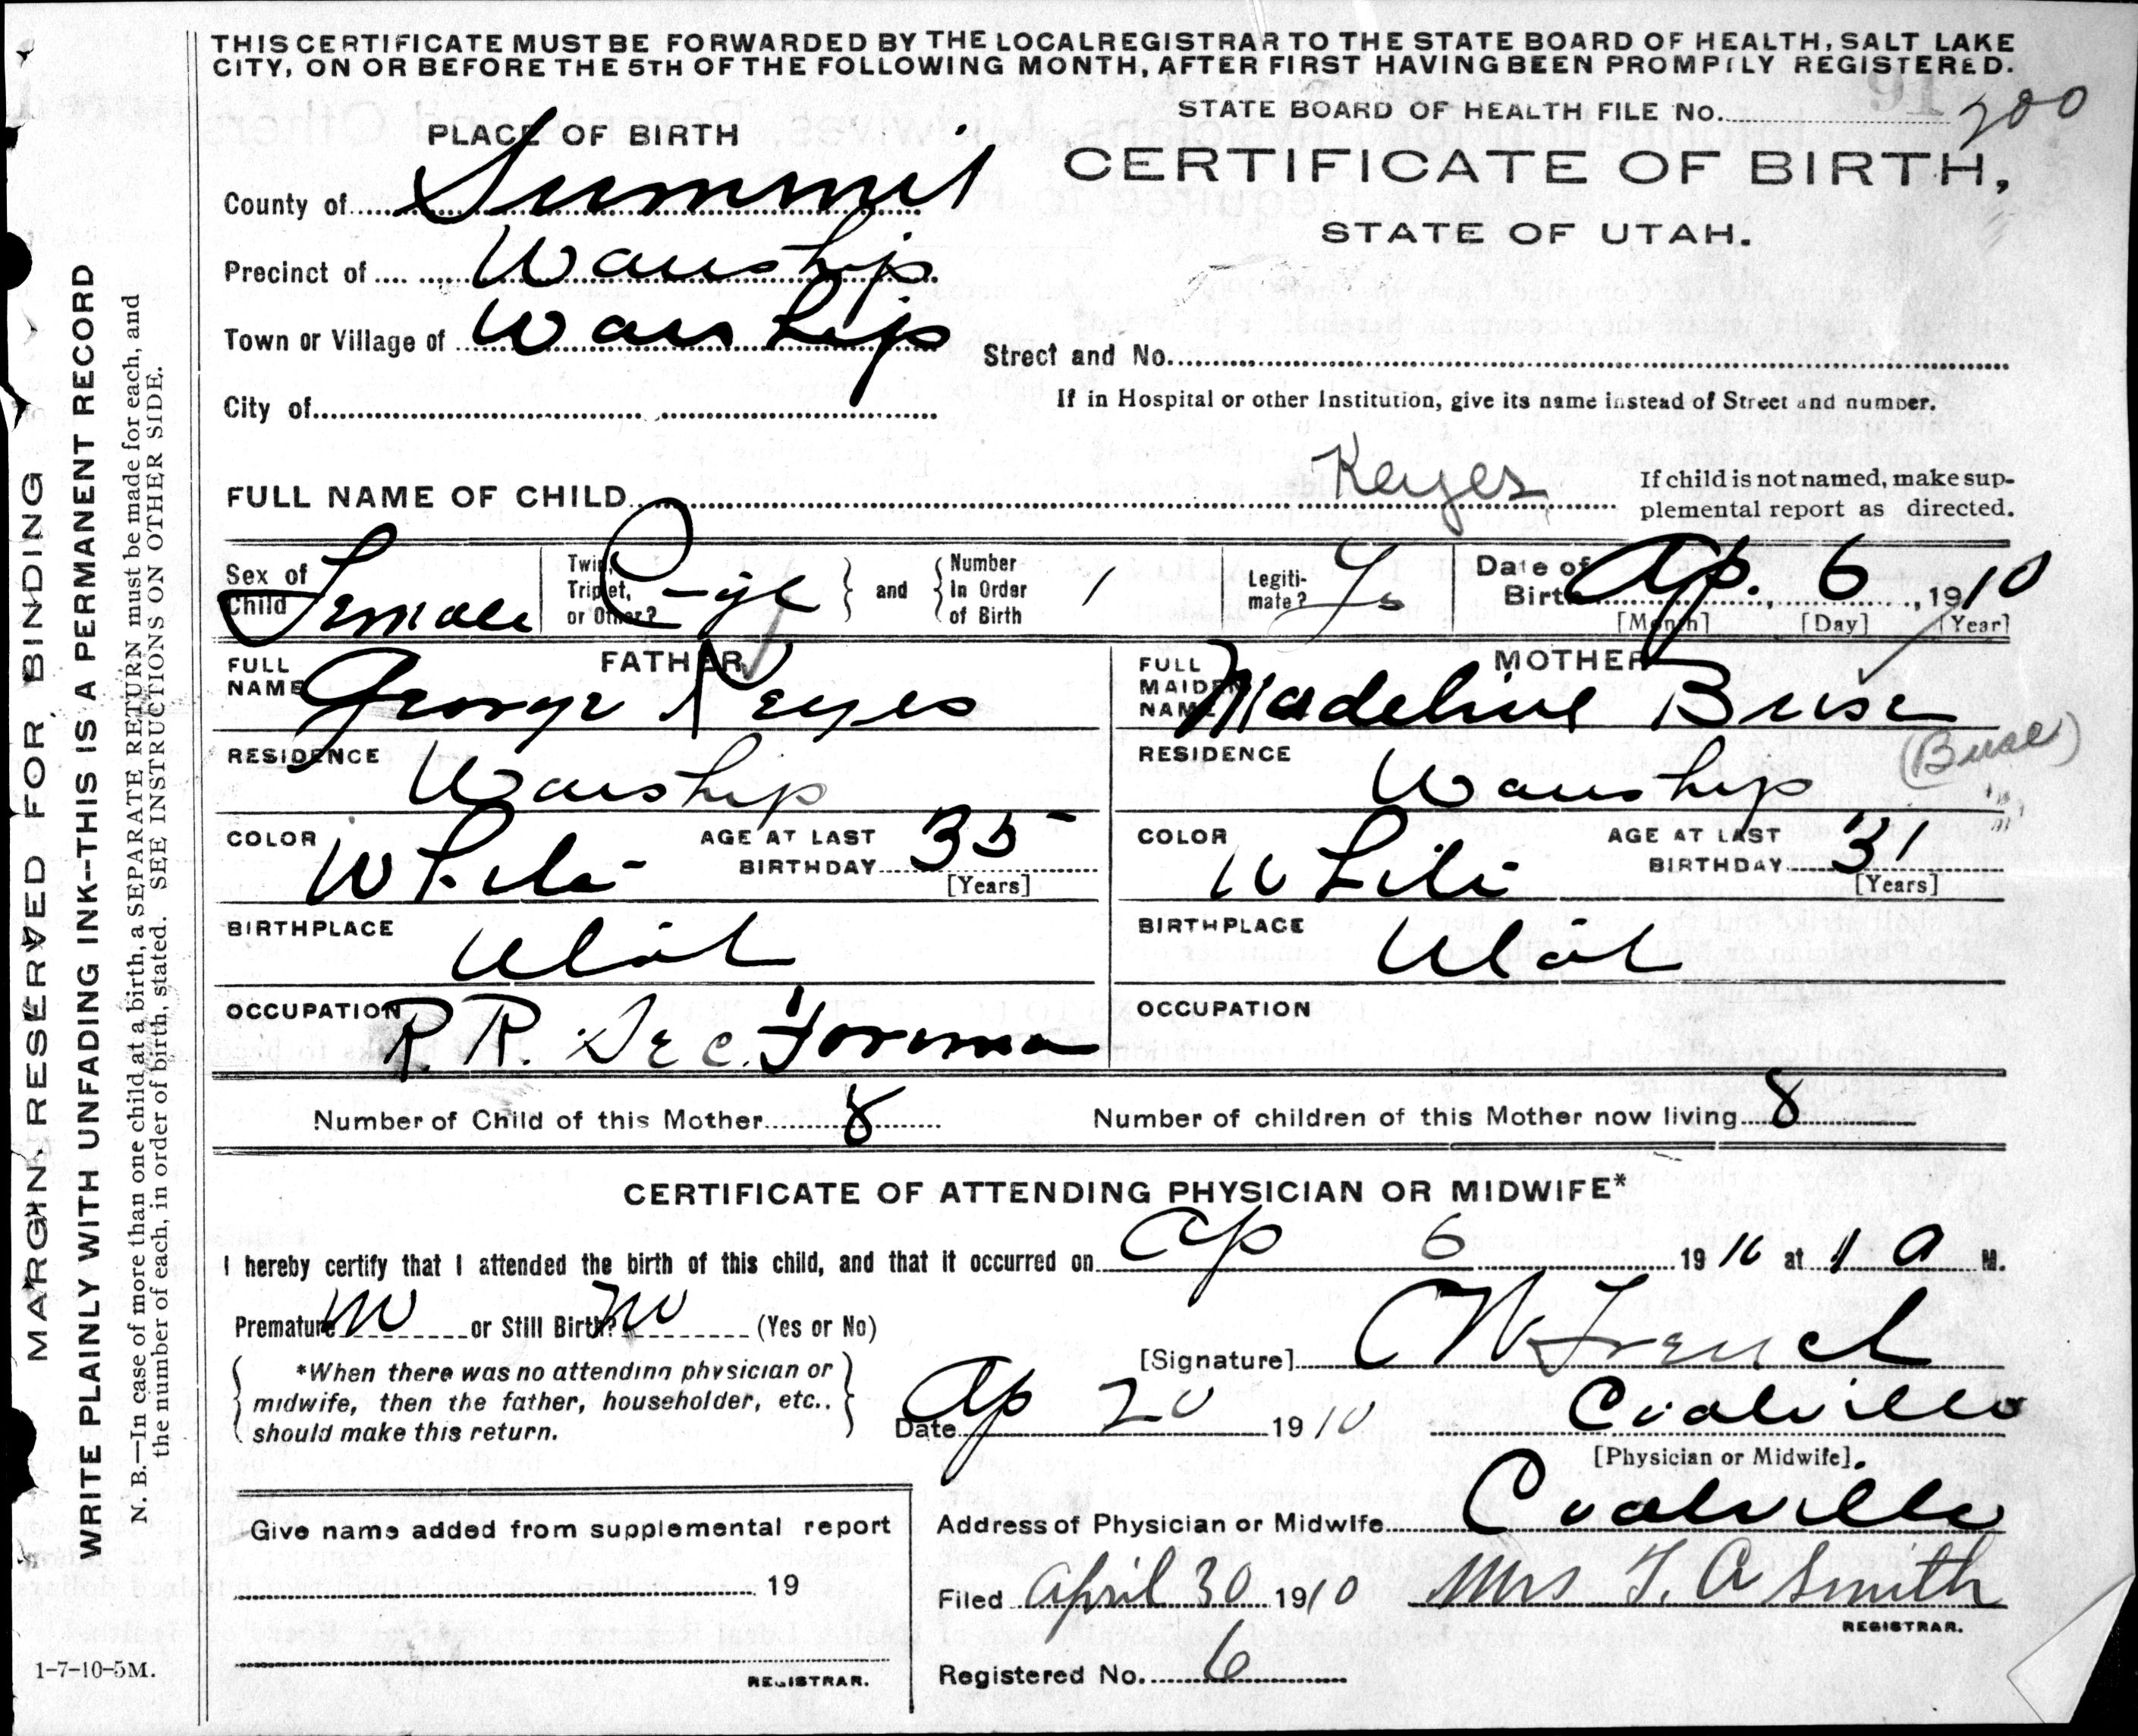 THIS CERTIFICATE MUST BE FORWARDED BY THE LOCAL REGISTRAR TO THE STATE BOARD OF HEALTH, SALT LAKE
CITY, ON OR BEFORE THE 5TH OF THE FOLLOWING MONTH, AFTER FIRST HAVING BEEN PROMPTLY REGISTERED.
STATE BOARD OF HEALTH FILE No. 200
91
PLACE OF BIRTH
CERTIFICATE OF BIRTH,
STATE OF UTAH.
County of Summit
Precinct of Wanship
Town or Village of Wanship
Street and No.
City of
If in Hospital or other Institution, give its name instead of Street and number.
FULL NAME OF CHILD Keyes
If child is not named, make sup-
plemental report as directed.
Sex of Child Female
Twin, Triplet, or Other?
and
Number In Order of Birth 1
Legiti-
mate? Ys
Date of Birth Ap. 6, 1910
[Month] [Day] [Year]
FATHER
FULL NAME George Keyes
MOTHER
FULL MAIDEN NAME Madeline Buse
(Buse)
RESIDENCE Wanship
RESIDENCE Wanship
COLOR White AGE AT LAST BIRTHDAY 35 [Years]
COLOR White AGE AT LAST BIRTHDAY 31 [Years]
BIRTHPLACE Utah
BIRTHPLACE Utah
OCCUPATION R. R. Sec. Foreman
OCCUPATION
Number of Child of this Mother 8
Number of children of this Mother now living 8
CERTIFICATE OF ATTENDING PHYSICIAN OR MIDWIFE*
I hereby certify that I attended the birth of this child, and that it occurred on Ap 6 1910 at 1 A M.
Premature No or Still Birth? No (Yes or No)
[Signature] French
*When there was no attending physician or
midwife, then the father, householder, etc.,
should make this return.
Date Ap 20 1910
Coalville
[Physician or Midwife].
Give name added from supplemental report
19
REGISTRAR.
Address of Physician or Midwife Coalville
Filed April 30 1910 Mrs T. A Smith
REGISTRAR.
Registered No. 6
1-7-10-5M.
MARGIN RESERVED FOR BINDING
WRITE PLAINLY WITH UNFADING INK--THIS IS A PERMANENT RECORD
N. B.—In case of more than one child at a birth, a SEPARATE RETURN must be made for each, and
the number of each, in order of birth, stated. SEE INSTRUCTIONS ON OTHER SIDE.